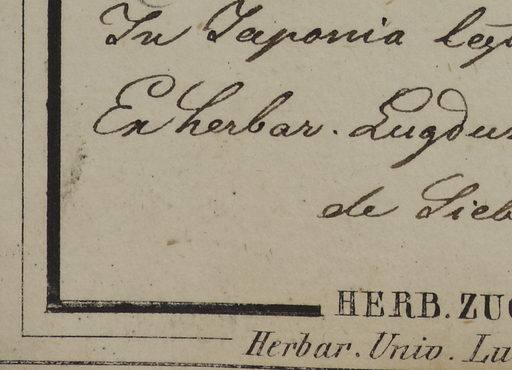 In Iaponia leg
Ex herbar. Lugdun
de Sieb
HERB. ZUC
Herbar. Univ. Lu